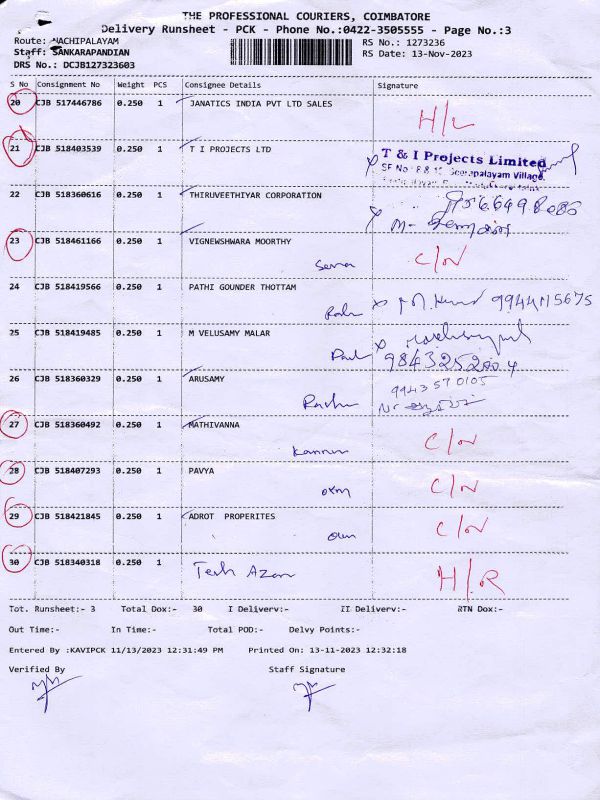 THE PROFESSIONAL COURIERS, COIMBATORE
Delivery Runsheet - PCK - Phone No.:0422-3505555 - Page No.:3
Route: NACHIPALAYAM RS No.: 1273236
Staff: SANKARAPANDIAN RS Date: 13-Nov-2023
DRS No.: DCJB127323603
S No Consignment No Weight PCS Consignee Details Signature
20 CJB 517446786 0.250 1 JANATICS INDIA PVT LTD SALES
H/L
21 CJB 518403539 0.250 1 T I PROJECTS LTD
T & I Projects Limited
Seerapalayam Village.
22 CJB 518360616 0.250 1 THIRUVEETHIYAR CORPORATION
23 CJB 518461166 0.250 1 VIGNEWSHWARA MOORTHY
C/N
24 CJB 518419566 0.250 1 PATHI GOUNDER THOTTAM
25 CJB 518419485 0.250 1 M VELUSAMY MALAR
26 CJB 518360329 0.250 1 ARUSAMY
9943570105
27 CJB 518360492 0.250 1 MATHIVANNA
C/N
28 CJB 518407293 0.250 1 PAVYA
C/N
29 CJB 518421845 0.250 1 ADROT PROPERITES
C/N
30 CJB 518340318 0.250 1
H/R
Tot. Runsheet:- 3 Total Dox:- 30 I Delivery:- II Delivery:- RTN Dox:-
Out Time:- In Time:- Total POD:- Delvy Points:-
Entered By :KAVIPCK 11/13/2023 12:31:49 PM Printed On: 13-11-2023 12:32:18
Verified By Staff Signature